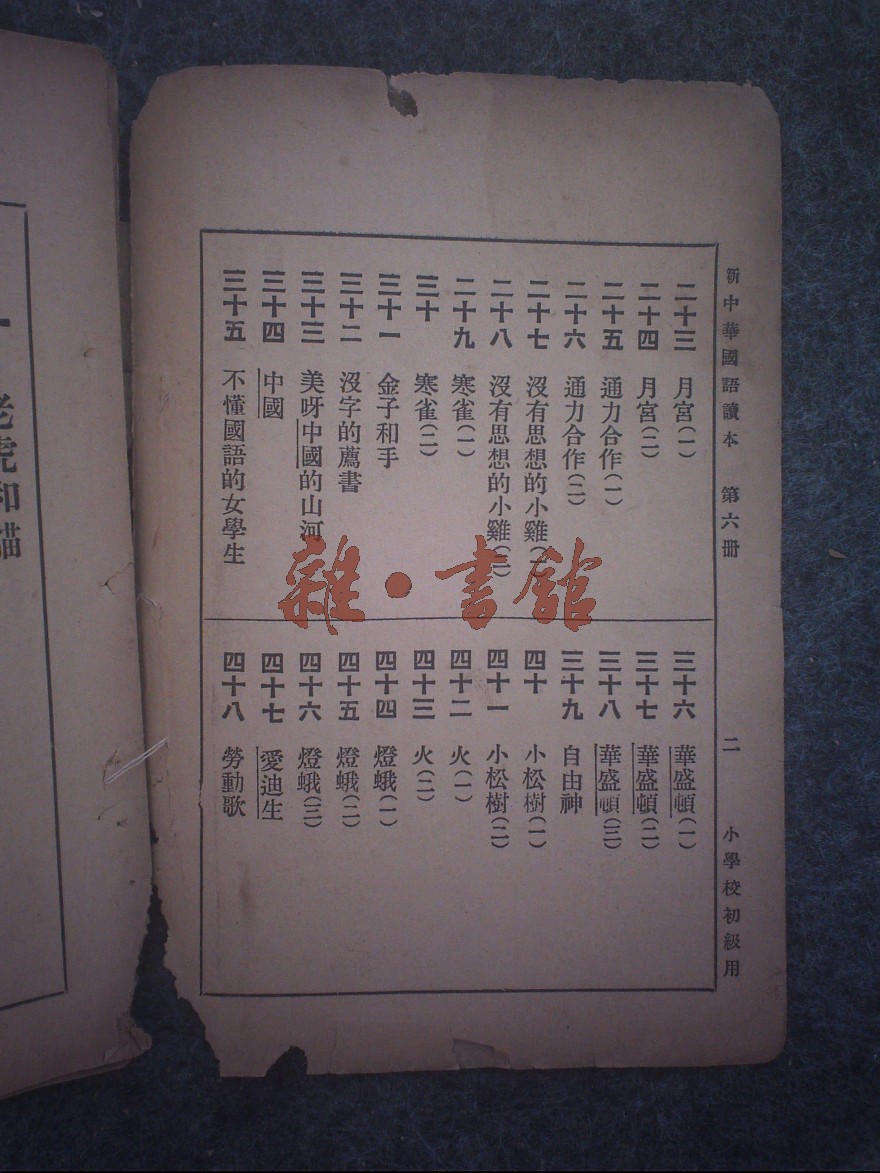 新中華國語讀本 第六冊
二
小學校初級用
二十三 月宮(一)
二十四 月宮(二)
二十五 通力合作(一)
二十六 通力合作(二)
二十七 沒有思想的小雞(一)
二十八 沒有思想的小雞(二)
二十九 寒雀(一)
三十 寒雀(二)
三十一 金子和手
三十二 沒字的薦書
三十三 美呀中國的山河
三十四 中國
三十五 不懂國語的女學生
三十六 華盛頓(一)
三十七 華盛頓(二)
三十八 華盛頓(三)
三十九 自由神
四十 小松樹(一)
四十一 小松樹(二)
四十二 火(一)
四十三 火(二)
四十四 燈蛾(一)
四十五 燈蛾(二)
四十六 燈蛾(三)
四十七 愛迪生
四十八 勞動歌
雜·書館
一 老虎和貓